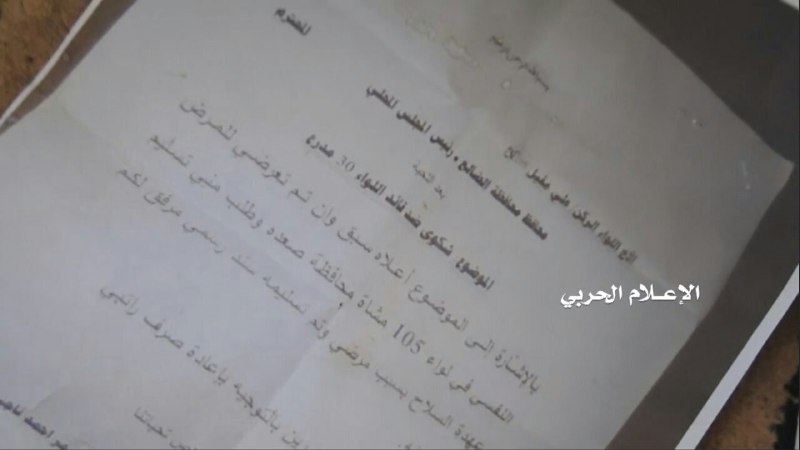 بسم الله الرحمن الرحيم
الاخ اللواء الركن علي مقبل صالح
المحترم
محافظ محافظة الضالع ، رئيس المجلس المحلي
بعد التحية
الموضوع شكوى ضد قائد اللواء 30 مدرع
بالإشارة إلى الموضوع أعلاه سبق وان تم تعرضي للمرض
النفسي في لواء 105 مشاة محافظة صعده وطلب مني تسليم
عهدة السلاح بسبب مرضي وتم تسليمه سند رسمي مرفق لكم
بالتوجيه بإعادة صرف راتبي
تحياتنا
احمد
الإعلام الحربي